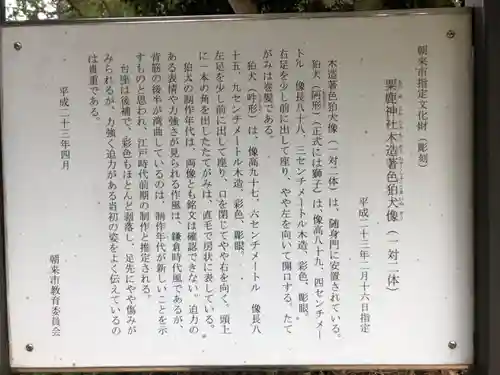 朝来市指定文化財（彫刻）
粟鹿神社木造著色狛犬像（一対二体）
平成二十三年二月十六日指定
木造著色狛犬像（一対二体）は、随身門に安置されている。
狛犬（阿形）（正式には獅子）は、像高八十九、四センチメー
トル　像長八十八、三センチメートル木造、彩色、彫眼。
右足を少し前に出して座り、やや左を向いて開口する。たて
がみは巻髪である。
狛犬（吽形）は、像高九十七、六センチメートル　像長八
十五、九センチメートル木造、彩色、彫眼。
左足を少し前に出して座り、口を閉じてやや右を向く。頭上
に一本の角を出したてがみは、直毛で房状に表している。
狛犬の制作年代は、両像とも銘文は確認できない。迫力の
ある表情や力強さが見られる作風は、鎌倉時代風であるが、
背筋の後半が湾曲しているのは、制作年代が新しいことを示
すものと思われ、江戸時代前期の制作と推定される。
台座は後補で、彩色もほとんど剥落し、足先にやや傷みが
みられるが、力強く迫力がある当初の姿をよく伝えているの
は貴重である。
平成二十三年四月
朝来市教育委員会